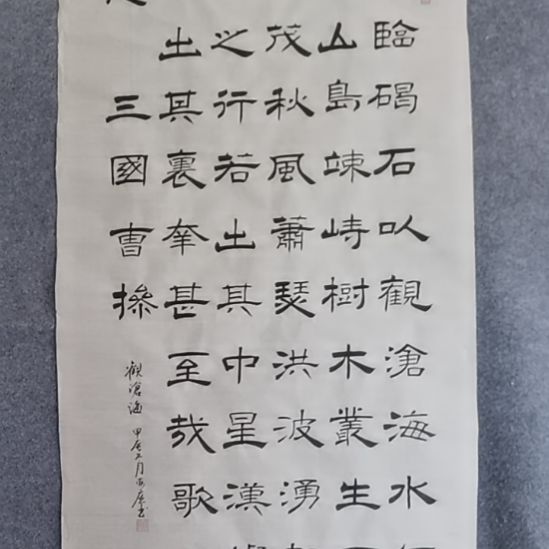 臨碣石以觀滄海水
山島竦峙樹木叢生
茂秋風蕭瑟洪波湧
之行若出其中星漢
出其裏幸甚至哉歌
三國曹操
觀滄海 甲辰